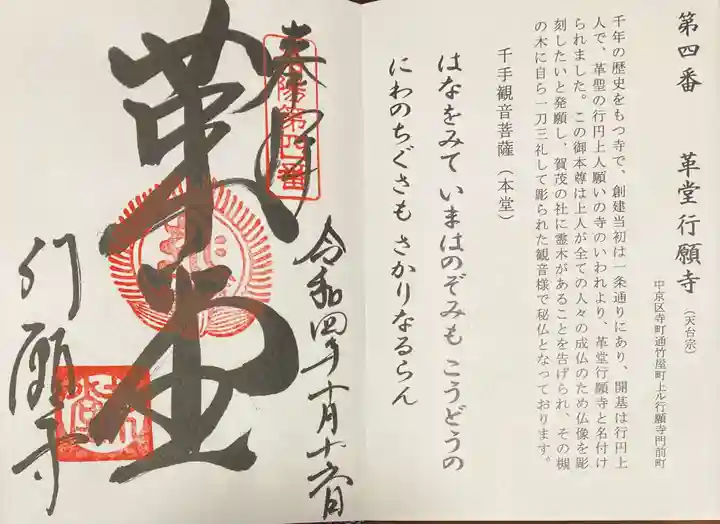 第四番 革堂行願寺 (天台宗)
中京区寺町通竹屋町上ル行願寺門前町
千年の歴史をもつ寺で、創建当初は一条通りにあり、開基は行円上
人で、革聖の行円上人願いの寺のいわれより、革堂行願寺と名付け
られました。この御本尊は上人が全ての人々の成仏のため仏像を彫
刻したいと発願し、賀茂の社に霊木があることを告げられ、その槻
の木に自ら一刀三礼して彫られた観音様で秘仏となっております。
千手観音菩薩(本堂)
はなをみて いまはのぞみも こうどうの
にわのちぐさも さかりなるらん
奉拝
洛陽第四番
令和四年十月十六日
革堂
行願寺